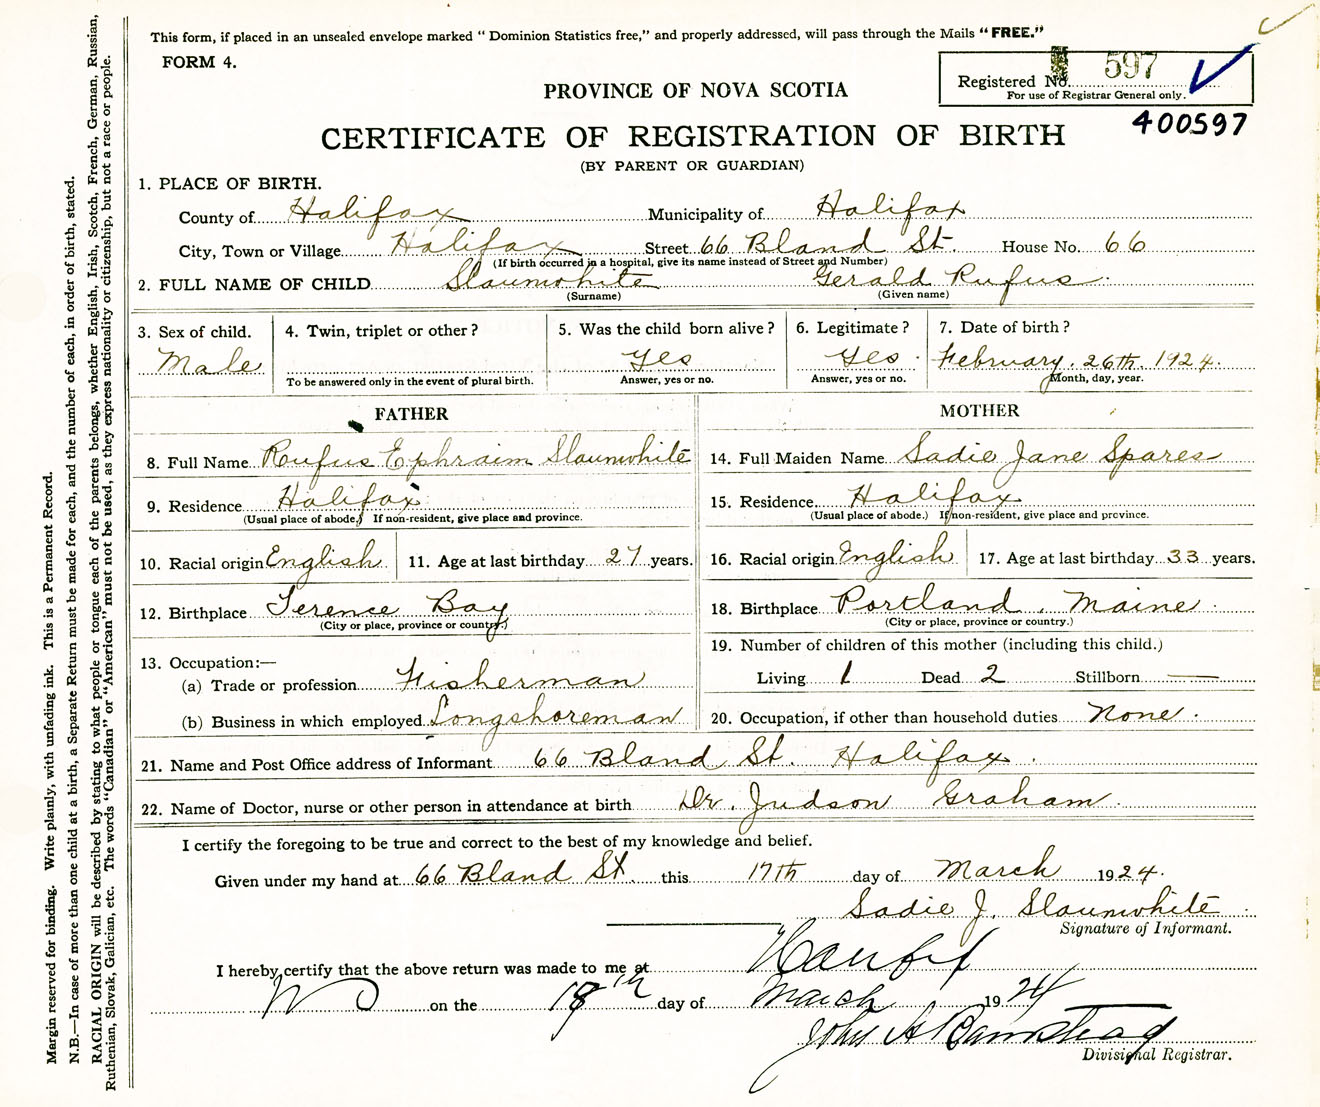 This form, if placed in an unsealed envelope marked “ Dominion Statistics free,” and properly addressed, will pass through the Mails “ FREE.”
FORM 4.
Registered No. 597
For use of Registrar General only.
400597
PROVINCE OF NOVA SCOTIA
CERTIFICATE OF REGISTRATION OF BIRTH
(BY PARENT OR GUARDIAN)
1. PLACE OF BIRTH.
County of Halifax Municipality of Halifax
City, Town or Village Halifax Street 66 Bland St. House No. 66
(If birth occurred in a hospital, give its name instead of Street and Number)
2. FULL NAME OF CHILD Slaunwhite Gerald Rufus
(Surname) (Given name)
3. Sex of child. 4. Twin, triplet or other ? 5. Was the child born alive ? 6. Legitimate ? 7. Date of birth ?
Male Yes Yes. February. 26th. 1924.
To be answered only in the event of plural birth. Answer, yes or no. Answer, yes or no. Month, day, year.
FATHER MOTHER
8. Full Name Rufus Ephraim Slaunwhite 14. Full Maiden Name Sadie Jane Spares
9. Residence Halifax 15. Residence Halifax
(Usual place of abode.) If non-resident, give place and province. (Usual place of abode.) If non-resident, give place and province.
10. Racial origin English 11. Age at last birthday 27 years. 16. Racial origin English 17. Age at last birthday 33 years.
12. Birthplace Terence Bay 18. Birthplace Portland, Maine.
(City or place, province or country.) (City or place, province or country.)
13. Occupation:— 19. Number of children of this mother (including this child.)
(a) Trade or profession Fisherman Living 1 Dead 2 Stillborn —
(b) Business in which employed Longshoreman 20. Occupation, if other than household duties None.
21. Name and Post Office address of Informant 66 Bland St. Halifax.
22. Name of Doctor, nurse or other person in attendance at birth Dr. Judson Graham.
I certify the foregoing to be true and correct to the best of my knowledge and belief.
Given under my hand at 66 Bland St. this 17th day of March 1924.
Sadie J. Slaunwhite
Signature of Informant.
I hereby certify that the above return was made to me at
on the 18th day of March 1924
John A
Divisional Registrar.
Margin reserved for binding. Write plainly, with unfading ink. This is a Permanent Record.
N.B.—In case of more than one child at a birth, a Separate Return must be made for each, and the number of each, in order of birth, stated.
RACIAL ORIGIN will be described by stating to what people or tongue each of the parents belongs, whether English, Irish, Scotch, French, German, Russian,
Ruthenian, Slovak, Galician, etc. The words “Canadian” or “American” must not be used, as they express nationality or citizenship, but not a race or people.